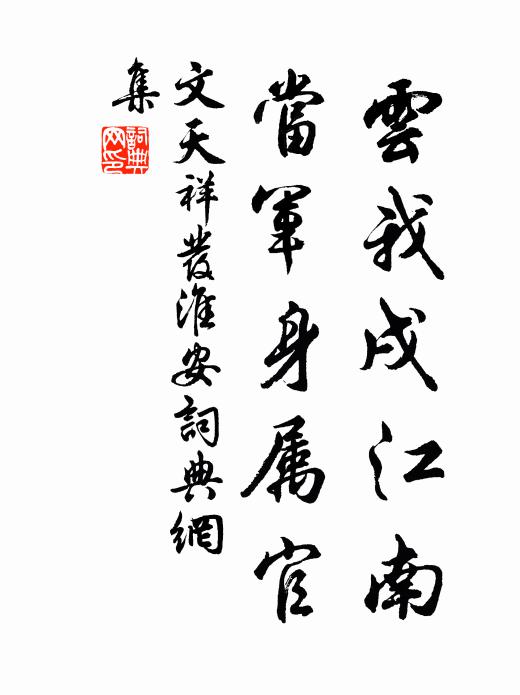 雲我戍江南
當軍身属官
文天祥發淮安詞典網
集
詞典
网印